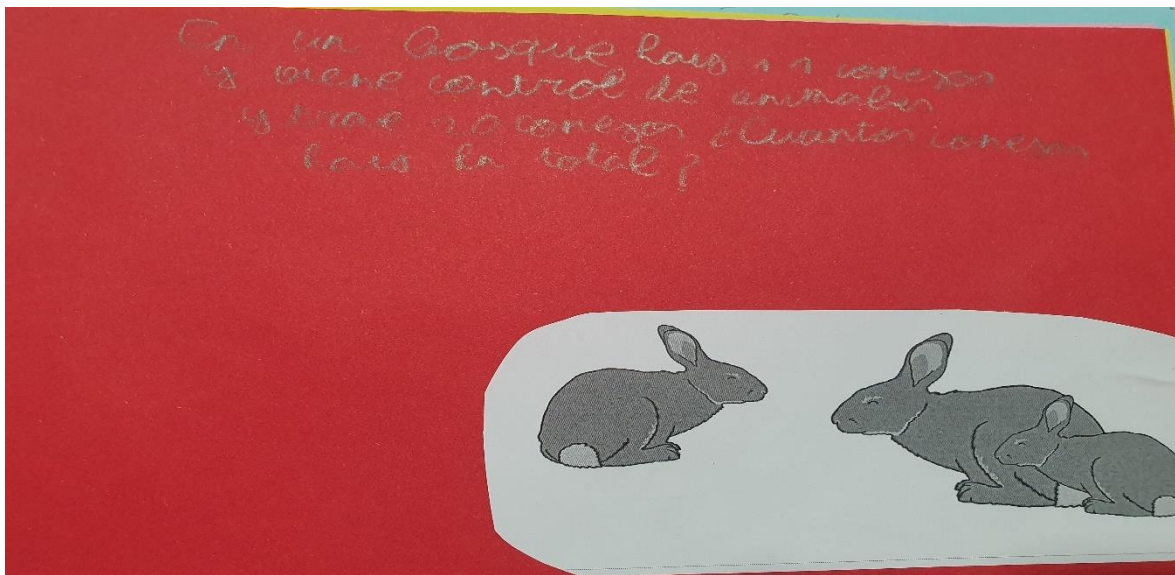 En un bosque hais 11 conexos
y viene control de animales
y trae 20 conexos ¿Cuantos conexos
hais En total?